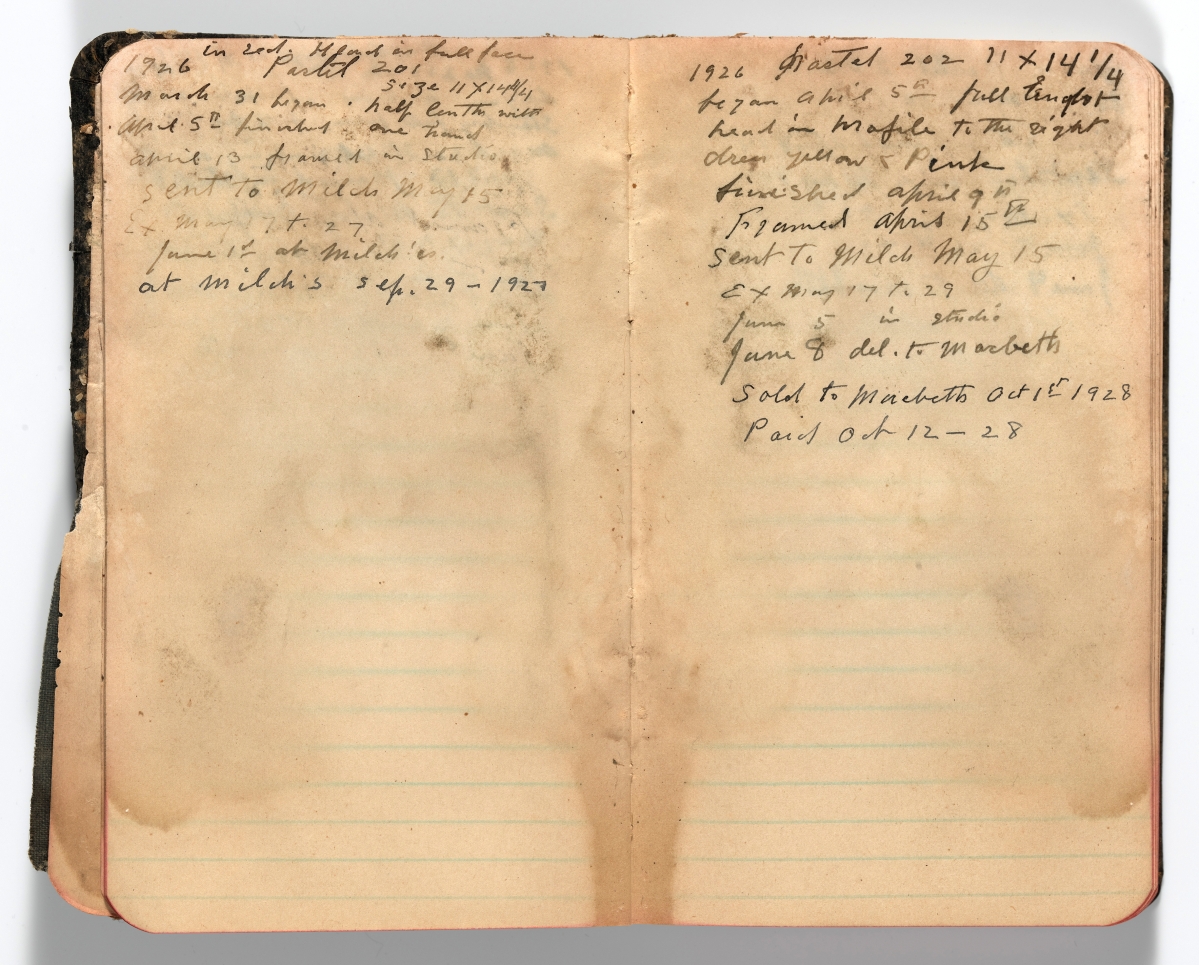 in red. Head in full face
1926 Pastel 201
size 11 X 14 1/4
March 31 began. half lenth with
April 5th finished one hand
april 13 framed in studio
sent to Milch May 15
Ex May 17 to 27
June 1st at Milch'es.
at Milch's Sep. 29 - 1927
1926 Pastel 202 11 X 14 1/4
began april 5th full
head in Profile to the right
dress yellow & Pink
finished april 9th
Framed April 15th
Sent to Milch May 15
Ex May 17 to 29
June 5 in studio
June 8 del. to Macbeth
Sold to Macbeth Oct 1st 1928
Paid Oct 12 - 28